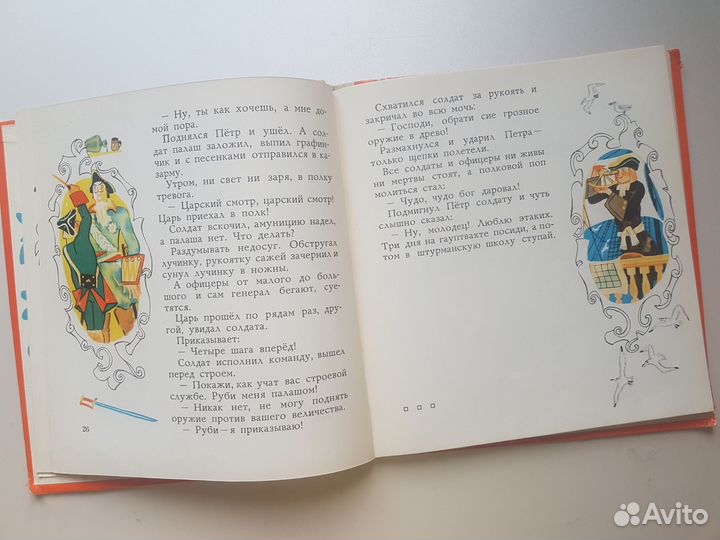 — Ну, ты как хочешь, а мне до-
мой пора.
Поднялся Пётр и ушёл. А сол-
дат палаш заложил, выпил графин-
чик и с песенками отправился в ка-
зарму.
Утром, ни свет ни заря, в полку
тревога.
— Царский смотр, царский смотр!
Царь приехал в полк!
Солдат вскочил, амуницию надел,
а палаша нет. Что делать?
Раздумывать недосуг. Обстругал
лучинку, рукоятку сажей зачернил и
сунул лучинку в ножны.
А офицеры от малого до боль-
шого и сам генерал бегают, суе-
тятся.
Царь прошёл по рядам раз, дру-
гой, увидал солдата.
Приказывает:
— Четыре шага вперёд!
Солдат исполнил команду, вышел
перед строем.
— Покажи, как учат вас строевой
службе. Руби меня палашом!
— Никак нет, не могу поднять
оружие против вашего величества.
— Руби — я приказываю!
26
Схватился солдат за рукоять и
закричал во всю мочь:
— Господи, обрати сие грозное
оружие в древо!
Размахнулся и ударил Петра —
только щепки полетели.
Все солдаты и офицеры ни живы
ни мертвы стоят, а полковой поп
молиться стал:
— Чудо, чудо бог даровал!
Подмигнул Пётр солдату и чуть
слышно сказал:
— Ну, молодец! Люблю этаких.
Три дня на гауптвахте посиди, а по-
том в штурманскую школу ступай.
Avito